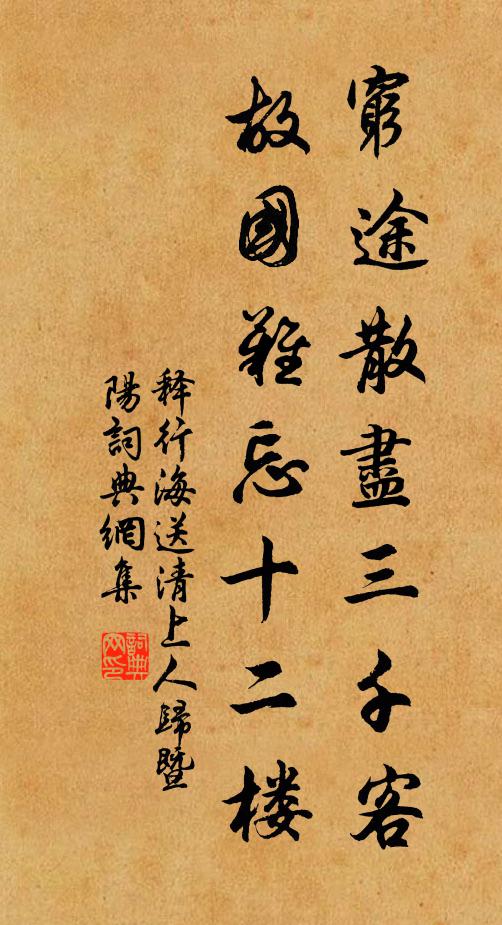 窮途散盡三千客
故國難忘十二楼
释行海送清上人歸暨
陽詞典網集
詞典网印